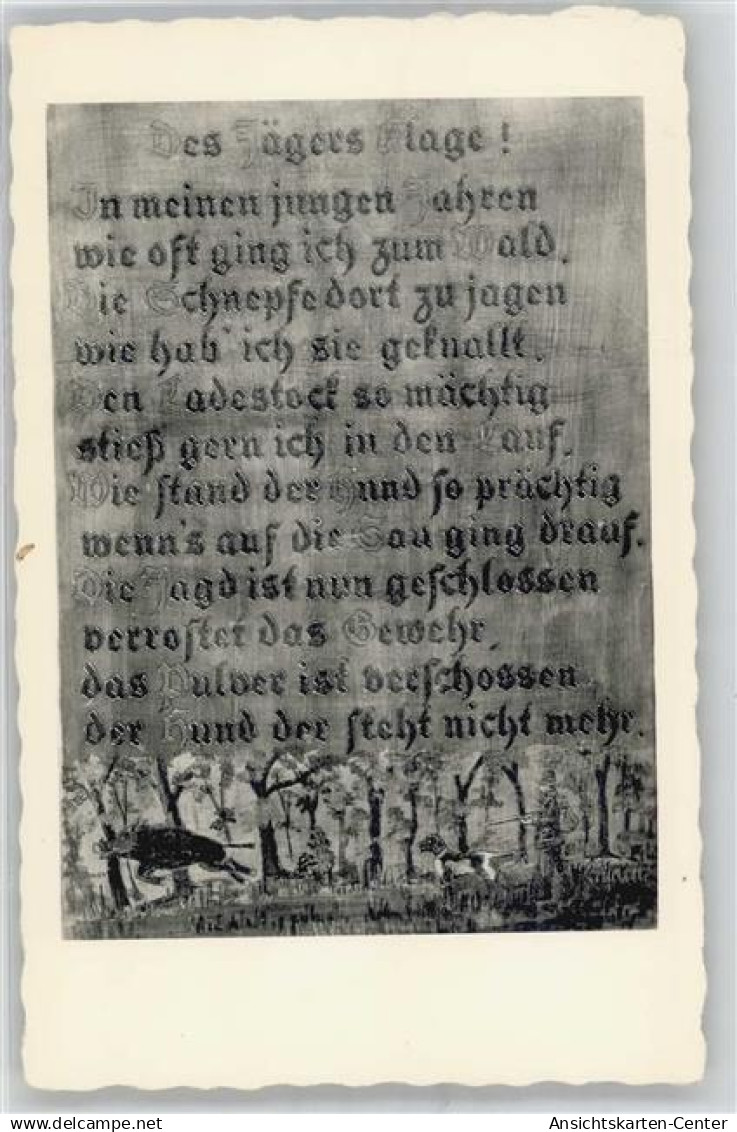 Des Jägers Klage!
In meinen jungen Jahren
wie oft ging ich zum Wald.
Die Schnepfe dort zu jagen
wie hab' ich sie geknallt.
Den Ladestock so mächtig
stieß gern ich in den Lauf.
Wie stand der Hund so prächtig
wenn's auf die Sau ging drauf.
Die Jagd ist nun geschlossen
verrostet das Gewehr.
das Pulver ist verschossen
der Hund der steht nicht mehr.
oldthing.com
Ansichtskarten-Center